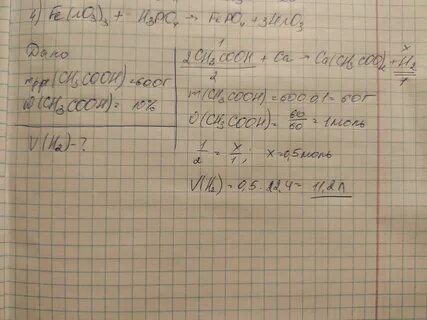 4) Fe(NO3)3 + H3PO4 → FePO4 + 3HNO3
Дано
mр-ра(CH3COOH)=600г
ω(CH3COOH)= 10%
V(H2)-?
1 x
2CH3COOH + Ca → Ca(CH3COO)2 + H2
2 1
m(CH3COOH)=600·0,1=60г
ν(CH3COOH)= 60/60 = 1моль
1/2 = x/1; x=0,5моль
V(H2)=0,5·22,4= 11,2л